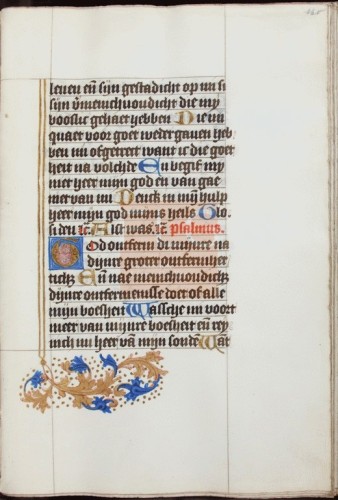 leuen eñ sijn gestadicht op mi si
sijn v̄menichuoudicht die my
booslic gehaet hebben Die mi
quaet voor goet weder gauen heb
ben mi ofgetrect want ic die goet
heit na volchde En begif my
niet heer mijn god en van gae
niet van mi Denck in mijn hulp
heer mijn god mijns heils Glo.
si den ic. Alst was. ic. psalmus.
God ontferm di mijnre na
dijnre groter ontfermher
ticheit Eñ nae menichuoudicheit
dijnre ontfermenisse doet of alle
mijn boesheit Wassche mi voort
meer van mijnre boesheit eñ rey
nich mi heer vā mijn sonden Wāt